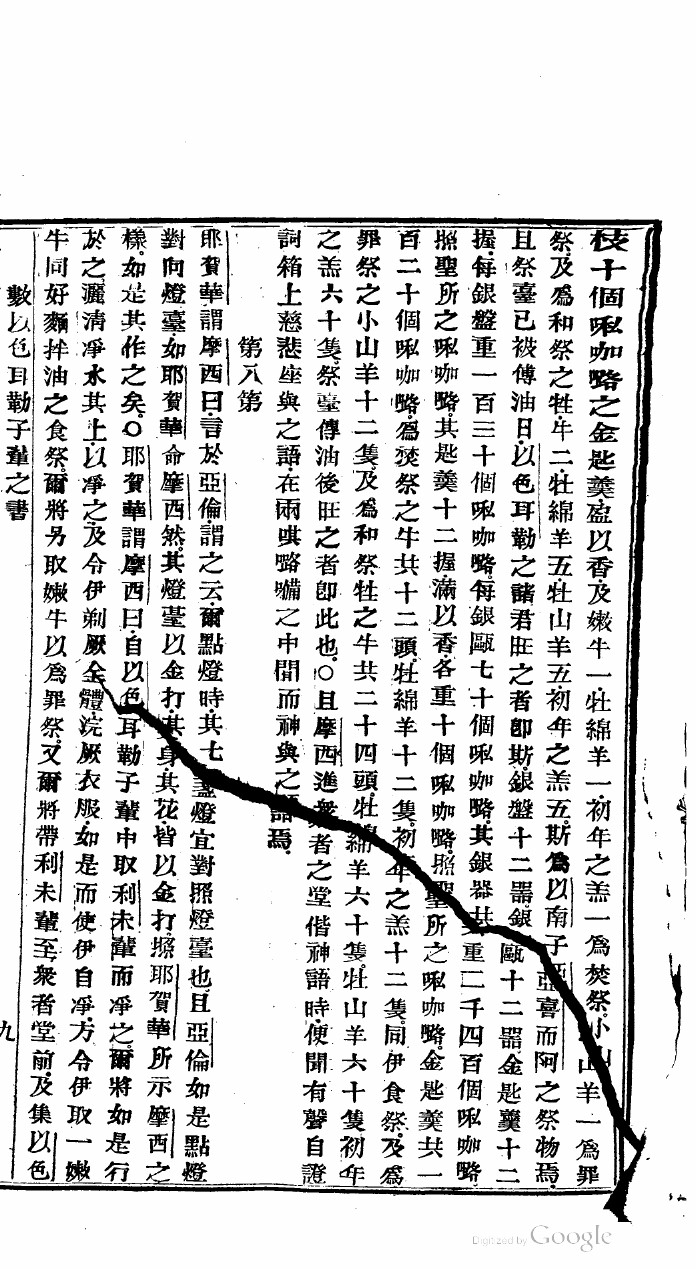 枝十個𠲖咖略之金匙羹盈以香及嫩牛一牡綿羊一初年之羔一爲焚祭小山羊一爲罪
祭及爲和祭之牲牛二牡綿羊五牡山羊五初年之羔五斯爲以南子亞喜而阿之祭物焉
且祭臺已被傅油日以色耳勒之諸君旺之者卽斯銀盤十二器銀甌十二器金匙羹十二
握每銀盤重一百三十個𠲖咖略每銀甌七十個𠲖咖略其銀器共重二千四百個𠲖咖略
照聖所之𠲖咖略其匙羹十二握滿以香各重十個𠲖咖略照聖所之𠲖咖略金匙羹共一
百二十個𠲖咖略爲焚祭之牛共十二頭牡綿羊十二隻初年之羔十二隻同伊食祭及爲
罪祭之小山羊十二隻及爲和祭牲之牛共二十四頭牡綿羊六十隻牡山羊六十隻初年
之羔六十隻祭臺傅油後旺之者卽此也○且摩西進衆者之堂偕神語時便聞有聲自證
詞箱上慈悲座與之語在兩㖼略囄之中間而神與之語焉
第八第
耶賀華謂摩西曰言於亞倫謂之云爾點燈時其七盞燈宜對照燈臺也且亞倫如是點燈
對向燈臺如耶賀華命摩西然其燈臺以金打其身其花皆以金打照耶賀華所示摩西之
樣如是其作之矣○耶賀華謂摩西曰自以色耳勒子輩中取利未輩而凈之爾將如是行
於之灑清凈水其上以凈之及令伊剃厥全體浣厥衣服如是而使伊自凈方令伊取一嫩
牛同好麵拌油之食祭爾將另取嫩牛以爲罪祭又爾將帶利未輩至衆者堂前及集以色
數以色耳勒子輩之書
九
Digitized by Google